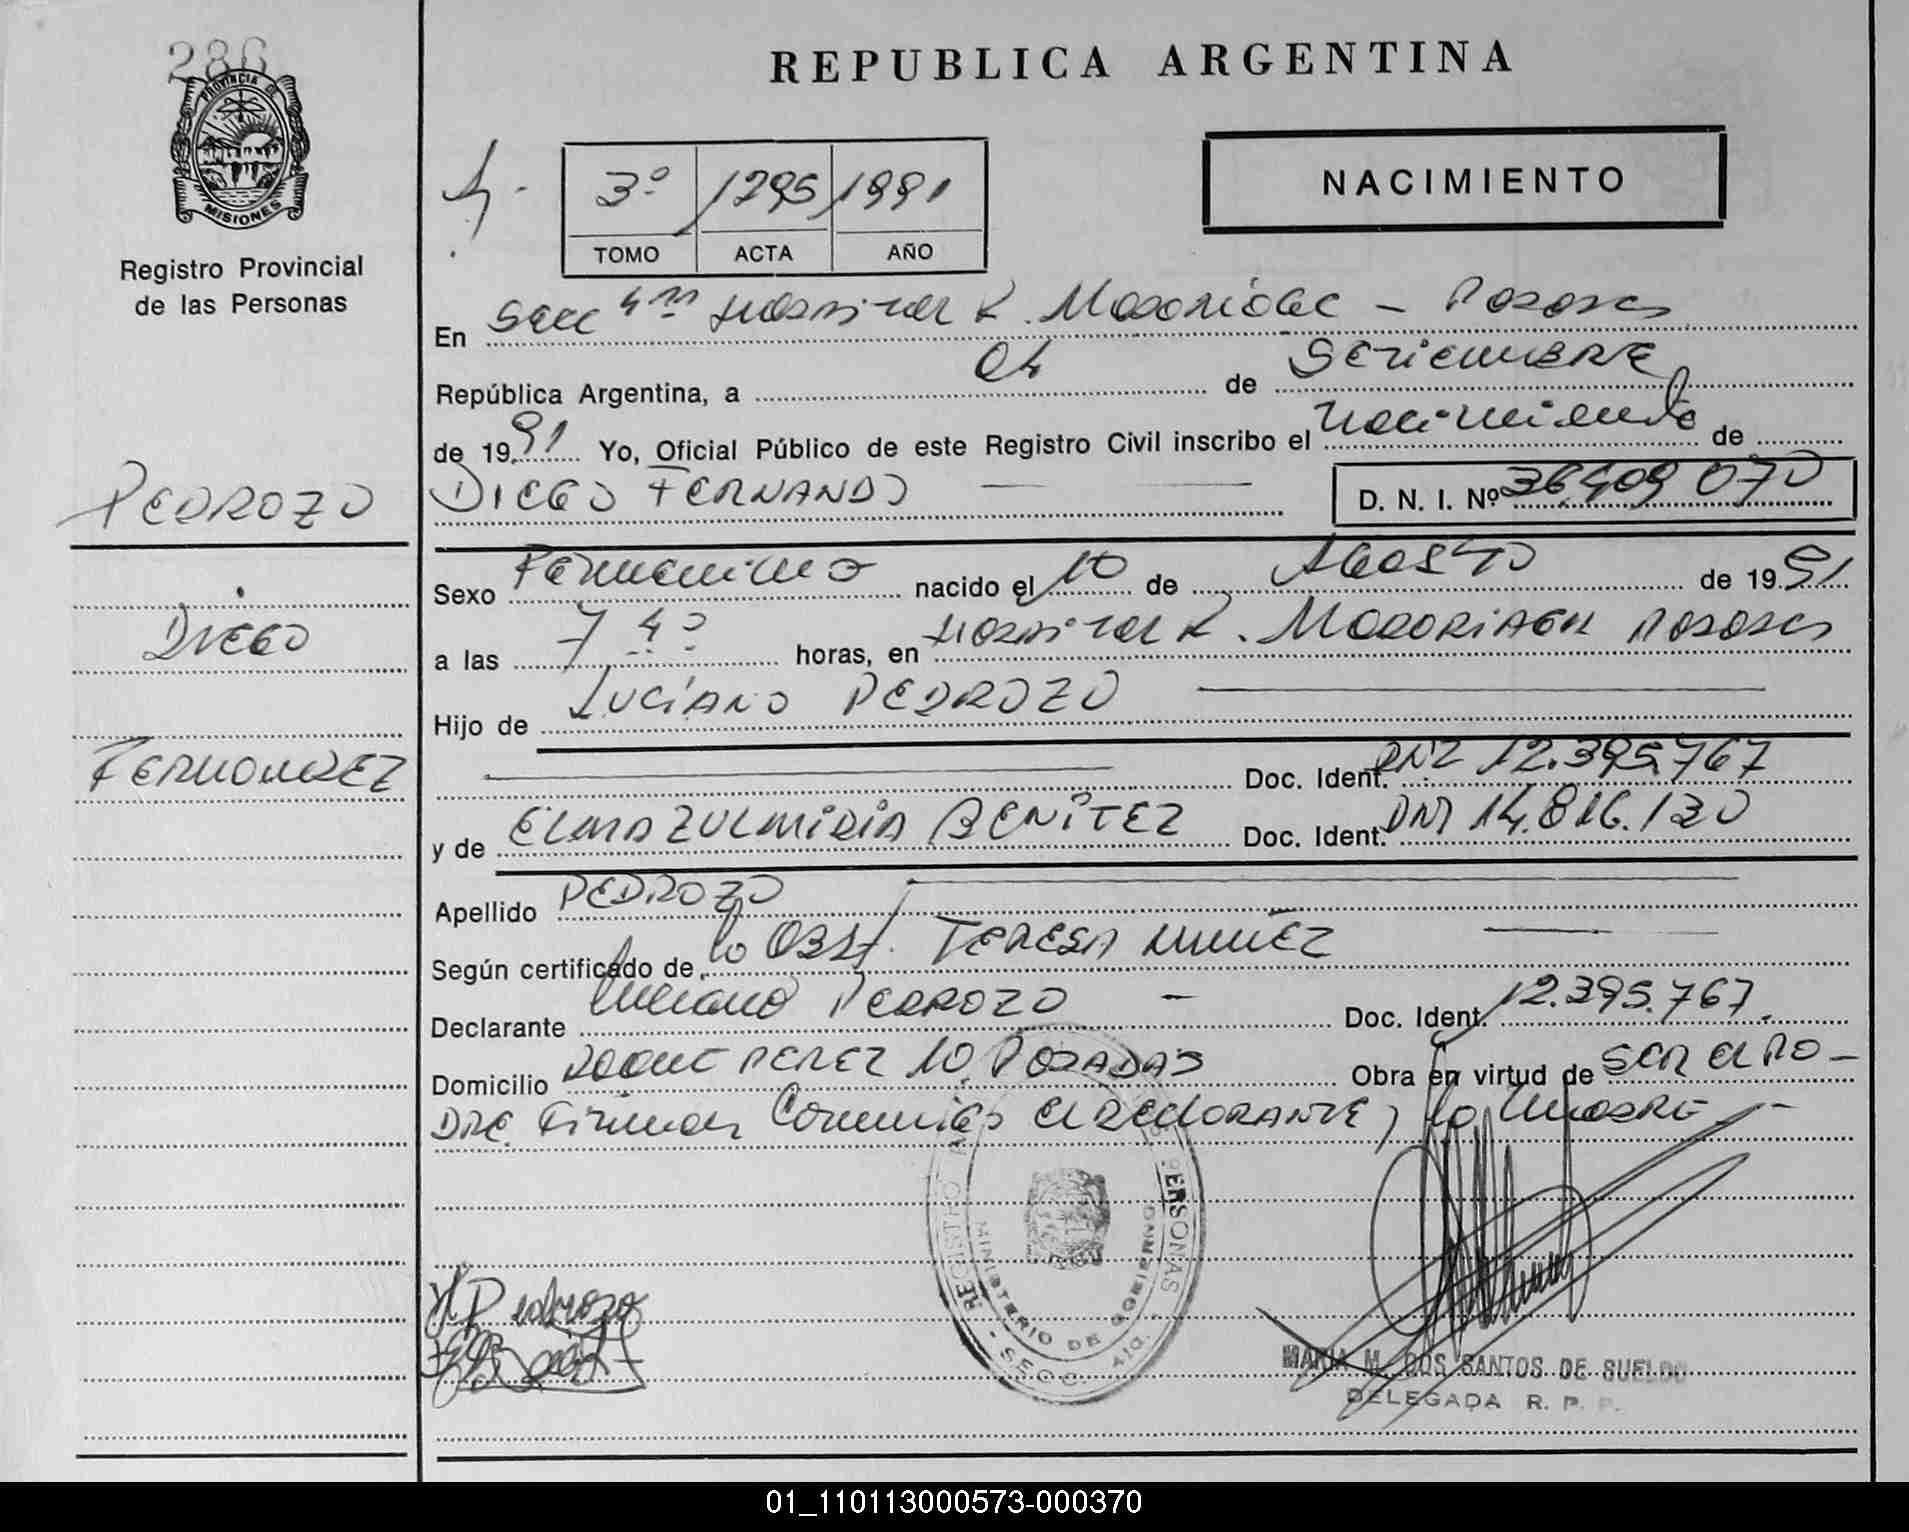 286
PROVINCIA DE
MISIONES
Registro Provincial
de las Personas
PEDROZO
DIEGO
FERNANDEZ
REPUBLICA ARGENTINA
3º 1295 1991
TOMO ACTA AÑO
NACIMIENTO
En Secc 4ta Hospital R. Madariaga - Posadas
República Argentina, a 04 de SETIEMBRE
de 1991 Yo, Oficial Público de este Registro Civil inscribo el Nacimiento de
DIEGO FERNANDO D. N. I. Nº 36.409.070
Sexo Femenino nacido el 10 de AGOSTO de 1991
a las 7 40 horas, en Hospital R. MADARIAGA POSADAS
Hijo de LUCIANO PEDROZO
Doc. Ident. DNI 12.395.767
y de ELMA ZULMIRIA BENÍTEZ Doc. Ident. DNI 14.816.130
Apellido PEDROZO
Según certificado de la OBST. TERESA NUÑEZ
Declarante Luciano PEDROZO - Doc. Ident. 12.395.767
Domicilio ROQUE PEREZ 10 POSADAS Obra en virtud de SER EL PA-
DRE. Firman Conmigo El DECLARANTE, la MADRE -
REGISTRO PERSONAS
MINISTERIO DE GOBIERNO
SECC. 4ta.
H Pedrozo
MARIA M. DOS SANTOS DE SUELDO
DELEGADA R. P. P.
01_110113000573-000370